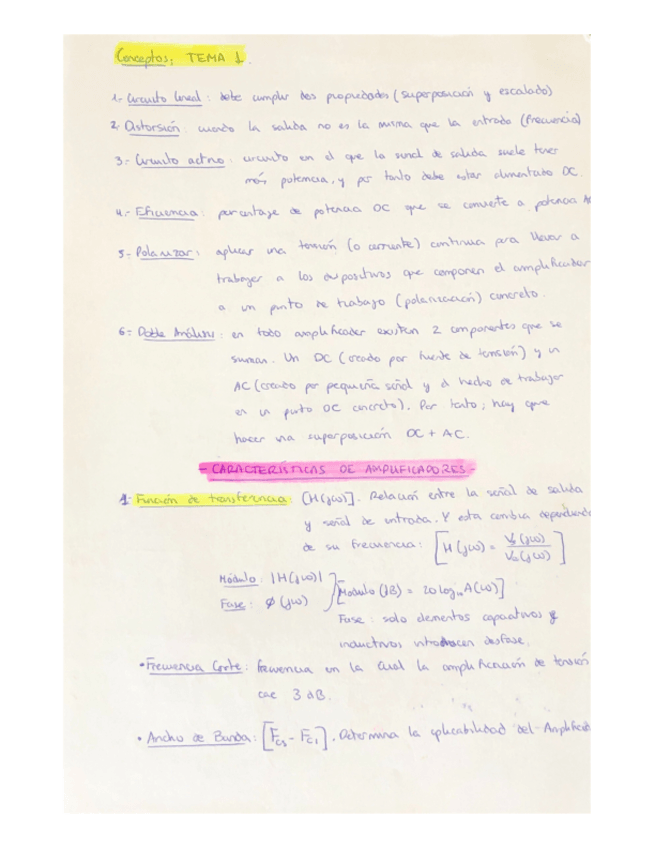 Conceptos; TEMA 1.
1- Circuito lineal: debe cumplir dos propiedades (superposición y escalado)
2- Distorsión: cuando la salida no es la misma que la entrada (frecuencia)
3- Circuito activo: circuito en el que la señal de salida suele tener
más potencia, y por tanto debe estar alimentado DC.
4- Eficiencia: porcentaje de potencia DC que se convierte a potencia A
5- Polarizar: aplicar una tensión (o corriente) continua para llevar a
trabajar a los dispositivos que componen el amplificador
a un punto de trabajo (polarización) concreto.
6- Doble Análisis: en todo amplificador existen 2 componentes que se
suman. Un DC (creado por fuente de tensión) y un
AC (creado por pequeña señal y el hecho de trabajar
en un punto DC concreto). Por tanto; hay que
hacer una superposición DC + AC.
- CARACTERÍSTICAS DE AMPLIFICADORES -
1- Función de transferencia: [H(jω)]. Relación entre la señal de salida
y señal de entrada. Y esta cambia dependiendo
de su frecuencia: [H(jω) = Vs(jω)/Ve(jω)]
Módulo: |H(jω)|
Fase: φ(jω)
[Módulo (dB) = 20 log10 A(ω)]
Fase: solo elementos capacitivos y
inductivos introducen desfase.
• Frecuencia Corte: frecuencia en la cual la amplificación de tensión
cae 3 dB.
• Ancho de Banda: [Fcs - Fci]. Determina la aplicabilidad del Amplific